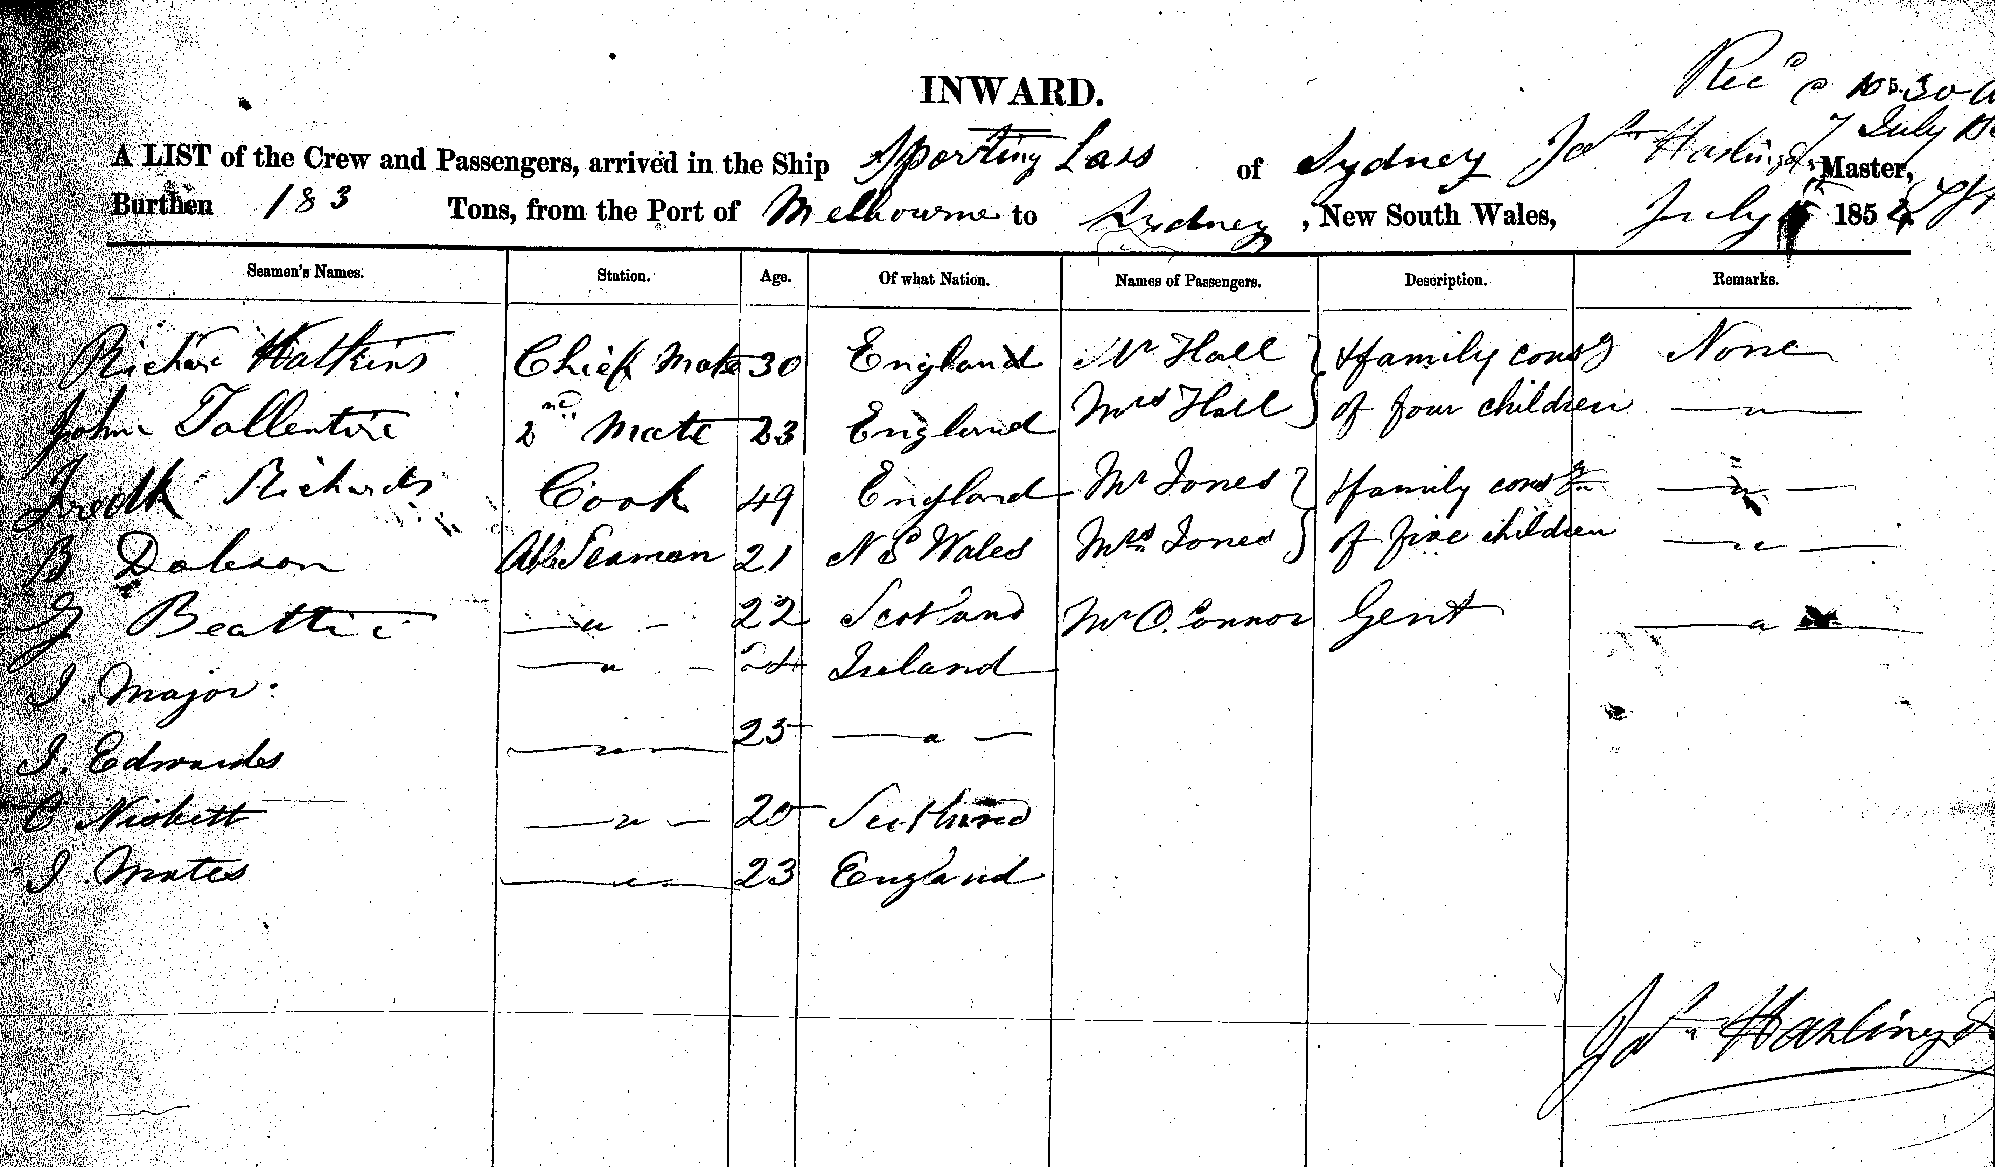 Recd @ 10.30 A
7 July 185
INWARD.
A LIST of the Crew and Passengers, arrived in the Ship Sporting Lass of Sydney Jas Harling Master,
Burthen 183 Tons, from the Port of Melbourne to Sydney, New South Wales, July 185
Seamen's Names. Station. Age. Of what Nation. Names of Passengers. Description. Remarks.
Watkins Chief Mate 30 England Mr Hall } & family consg None
John Tallentire 2nd Mate 23 England Mrs Hall } of four children — " —
Fredk Richards Cook 49 England Mr Jones } & family cons — " —
B Dobson Able Seaman 21 N S Wales Mrs Jones } of five children — " —
G Beattie — " — 22 Scotland Mr O.Connor Gent — " —
J. Major — " — 24 Ireland
J. Edwards — " — 25 — " —
C Niskett — " — 20 Scotland
J. Mates — " — 23 England